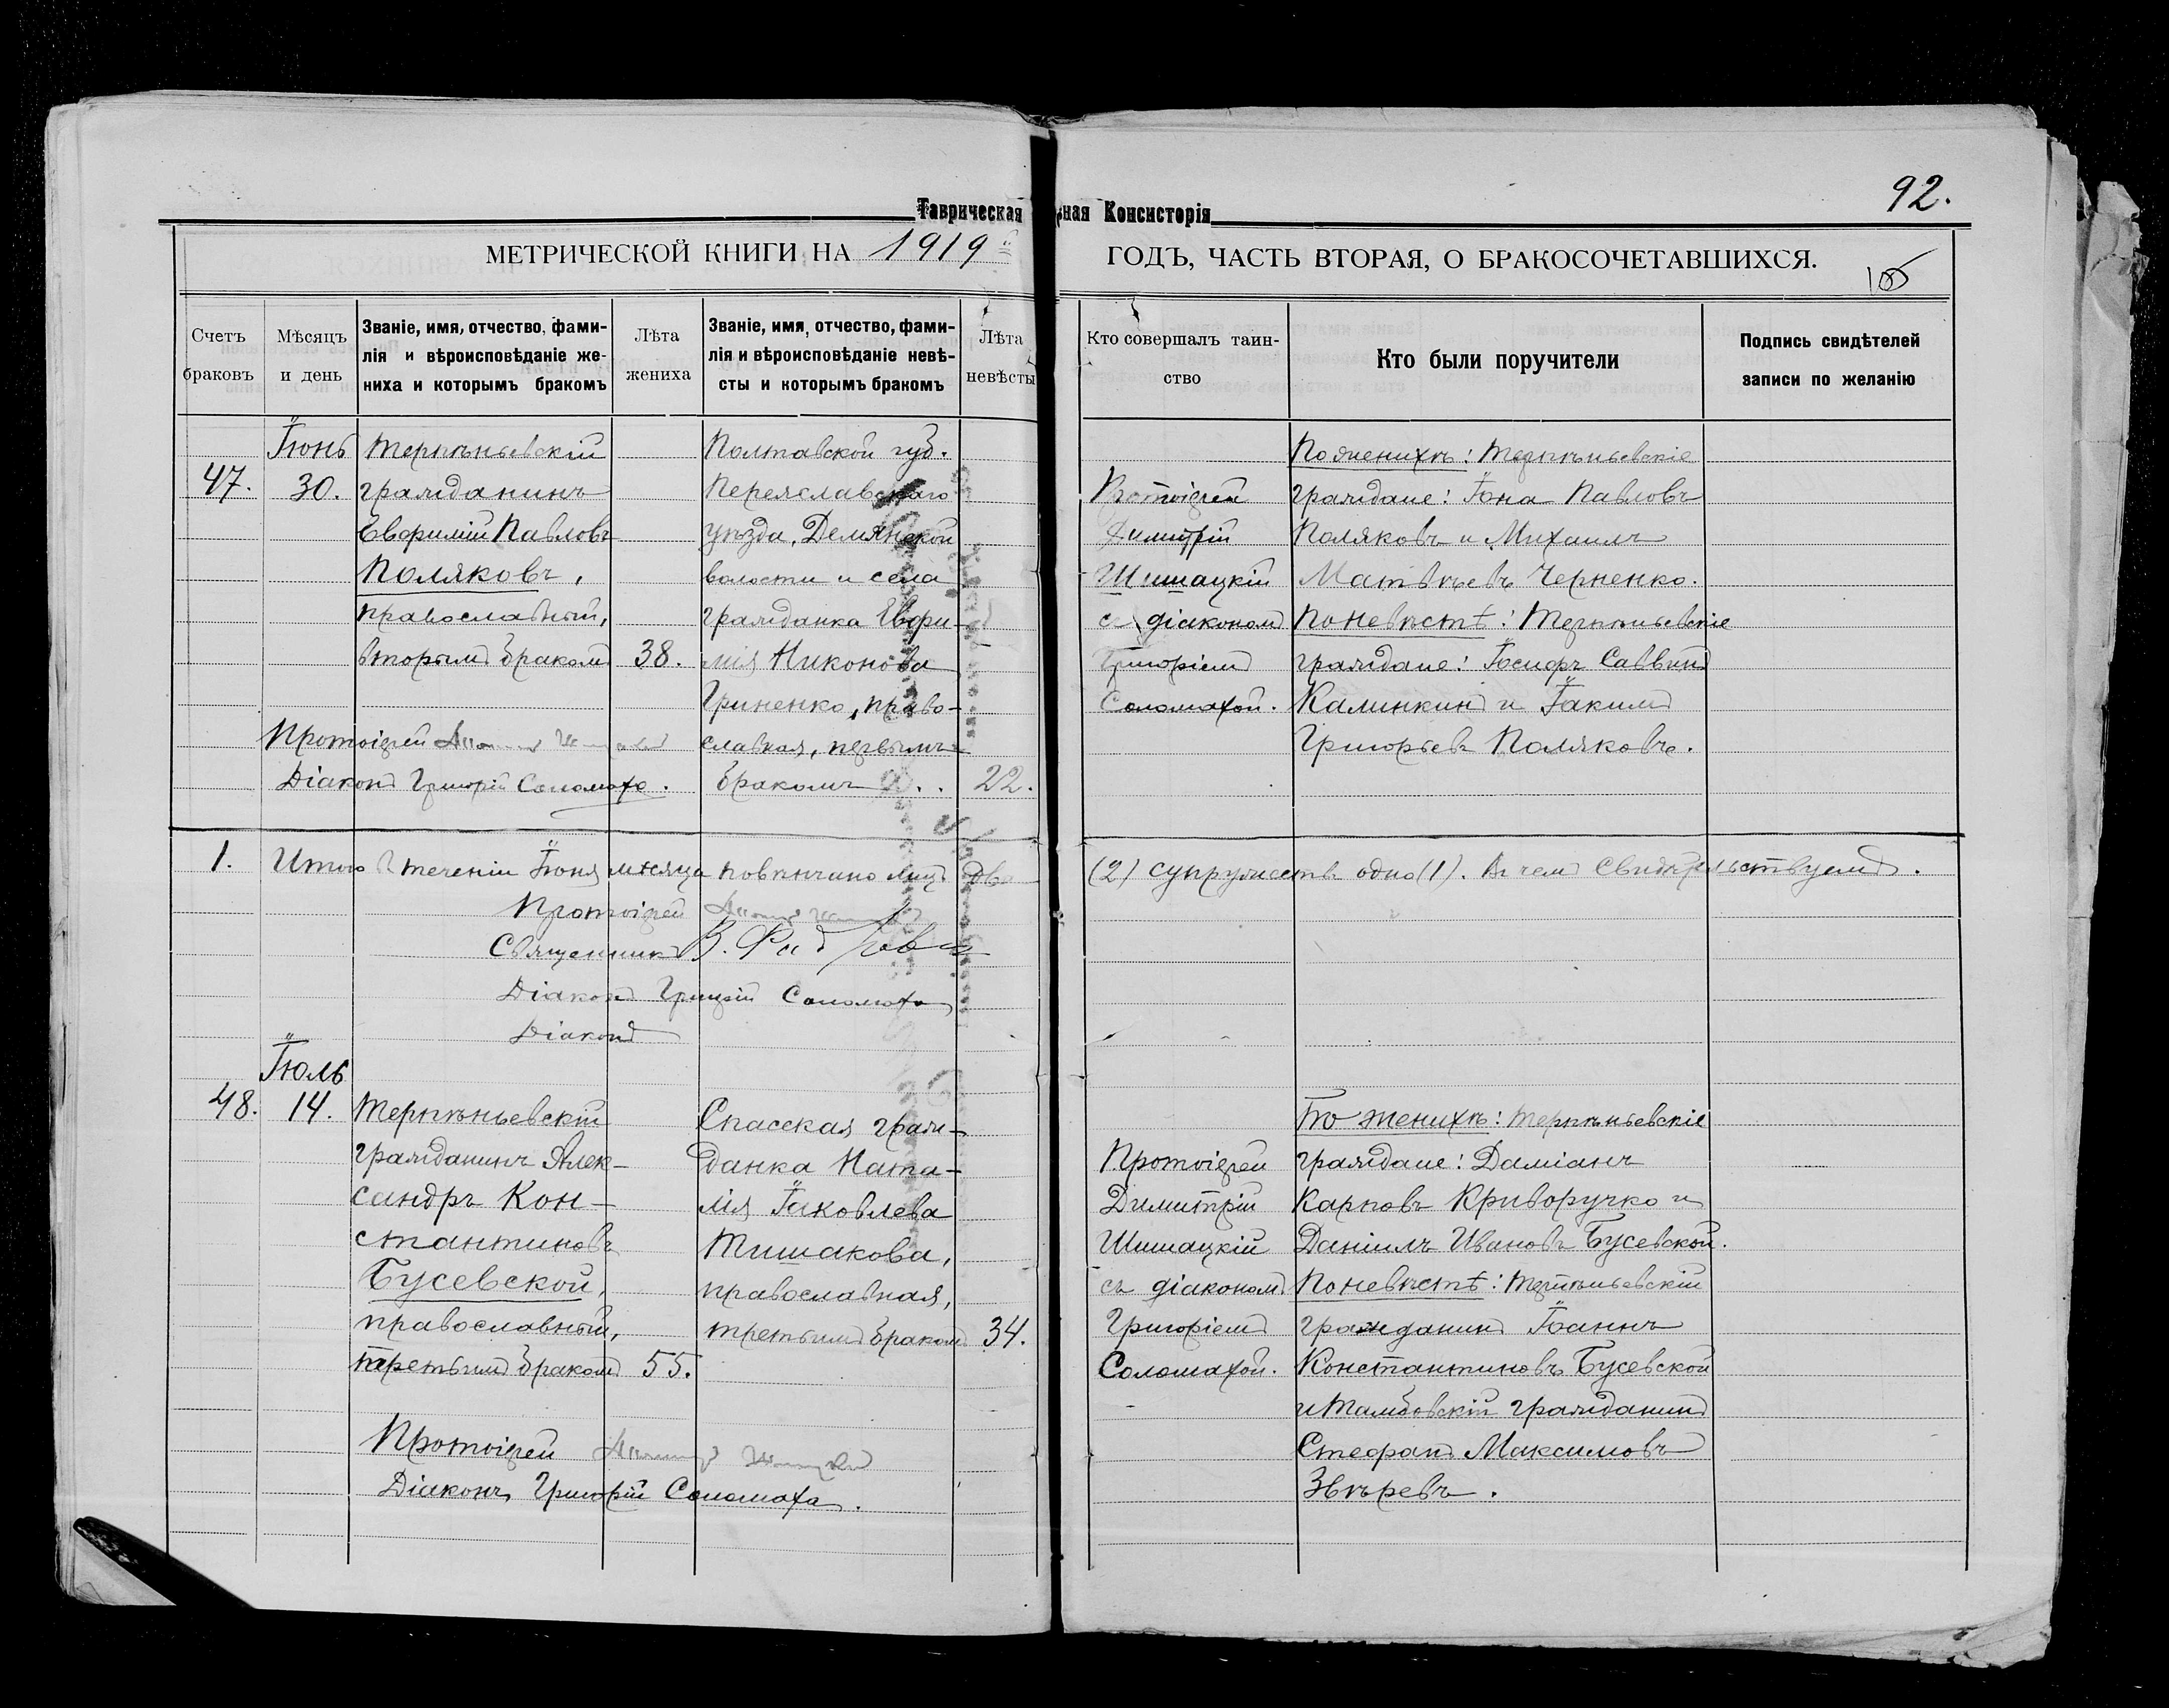 Таврическая
ная Консисторія
92.
МЕТРИЧЕСКОЙ КНИГИ НА 1919 й
ГОДЪ, ЧАСТЬ ВТОРАЯ, О БРАКОСОЧЕТАВШИХСЯ.
105
Счетъ
браковъ
Мѣсяцъ
и день
Званіе, имя, отчество, фами-
лія и вѣроисповѣданіе же-
ниха и которымъ бракомъ
Лѣта
жениха
Званіе, имя, отчество, фами-
лія и вѣроисповѣданіе невѣ-
сты и которымъ бракомъ
Лѣта
невѣсты
Кто совершалъ таин-
ство
Кто были поручители
Подпись свидѣтелей
записи по желанію
47.
Іюнь
30.
Терпѣньевскій
гражданинъ
Евфимій Павловъ
Поляковъ,
православный,
вторымъ бракомъ
38.
Полтавской губ.
Переяславскаго
уѣзда, Демянской
волости и села
гражданка Евфи-
мія Никонова
Гриненко, право-
славная, первымъ
бракомъ . .
22.
Протоіерей
Димитрій
Шишацкій
съ діакономъ
Григоріемъ
Соломахой.
По женихѣ: Терпѣньевскіе
граждане: Іона Павловъ
Поляковъ и Михаилъ
Матвѣевъ Черненко.
По невѣстѣ: Терпѣньевскіе
граждане: Іосифъ Саввинъ
Калинкинъ и Іакимъ
Григорьевъ Поляковъ.
Протоіерей Димитрій Шишацкій
Діаконъ Григорій Соломаха.
1.
Итого въ теченіи Іюня мѣсяца повѣнчано лицъ два
(2) супружествъ одно (1). Въ чемъ свидѣтельствуемъ.
Протоіерей Димитрій Шишацкій
Священникъ В.
Діаконъ Григорій Соломаха
Діаконъ
Іюль
48.
14.
Терпѣньевскій
гражданинъ Алек-
сандръ Кон-
стантиновъ
Бусевской,
православный,
третьимъ бракомъ
55.
Спасская граж-
данка Ната-
лія Іаковлева
Тишакова,
православная,
третьимъ бракомъ
34.
Протоіерей
Димитрій
Шишацкій
съ діакономъ
Григоріемъ
Соломахой.
По женихѣ: Терпѣньевскіе
граждане: Даміанъ
Карповъ Криворучко и
Даніилъ Ивановъ Бусевской.
По невѣстѣ: Терпѣньевскій
гражданинъ Іоаннъ
Константиновъ Бусевской
и Тамбовскій гражданинъ
Стефанъ Максимовъ
Звѣревъ.
Протоіерей Димитрій Шишацкій
Діаконъ Григорій Соломаха.